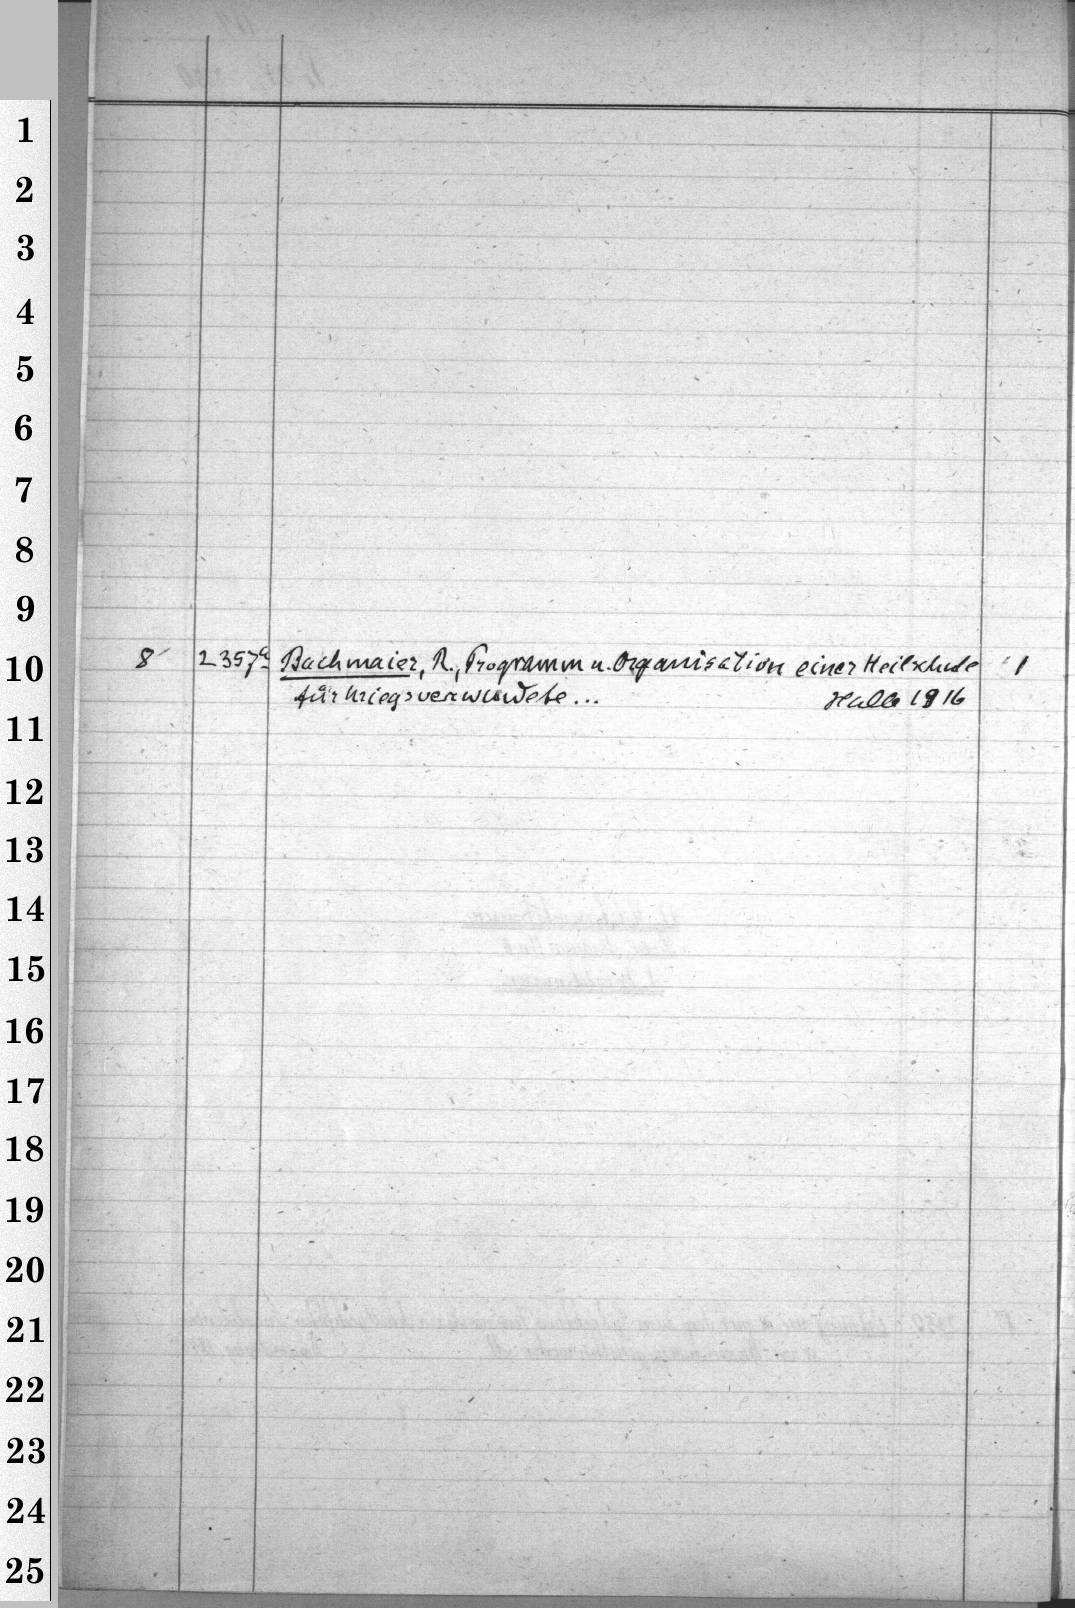 1
2
3
4
5
6
7
8
9
10
11
12
13
14
15
16
17
18
19
20
21
22
23
24
25
8 2357a Bachmaier, R., Programm u. Organisation einer Heilschule 1
für Kriegsverwundete ... Halle 1916